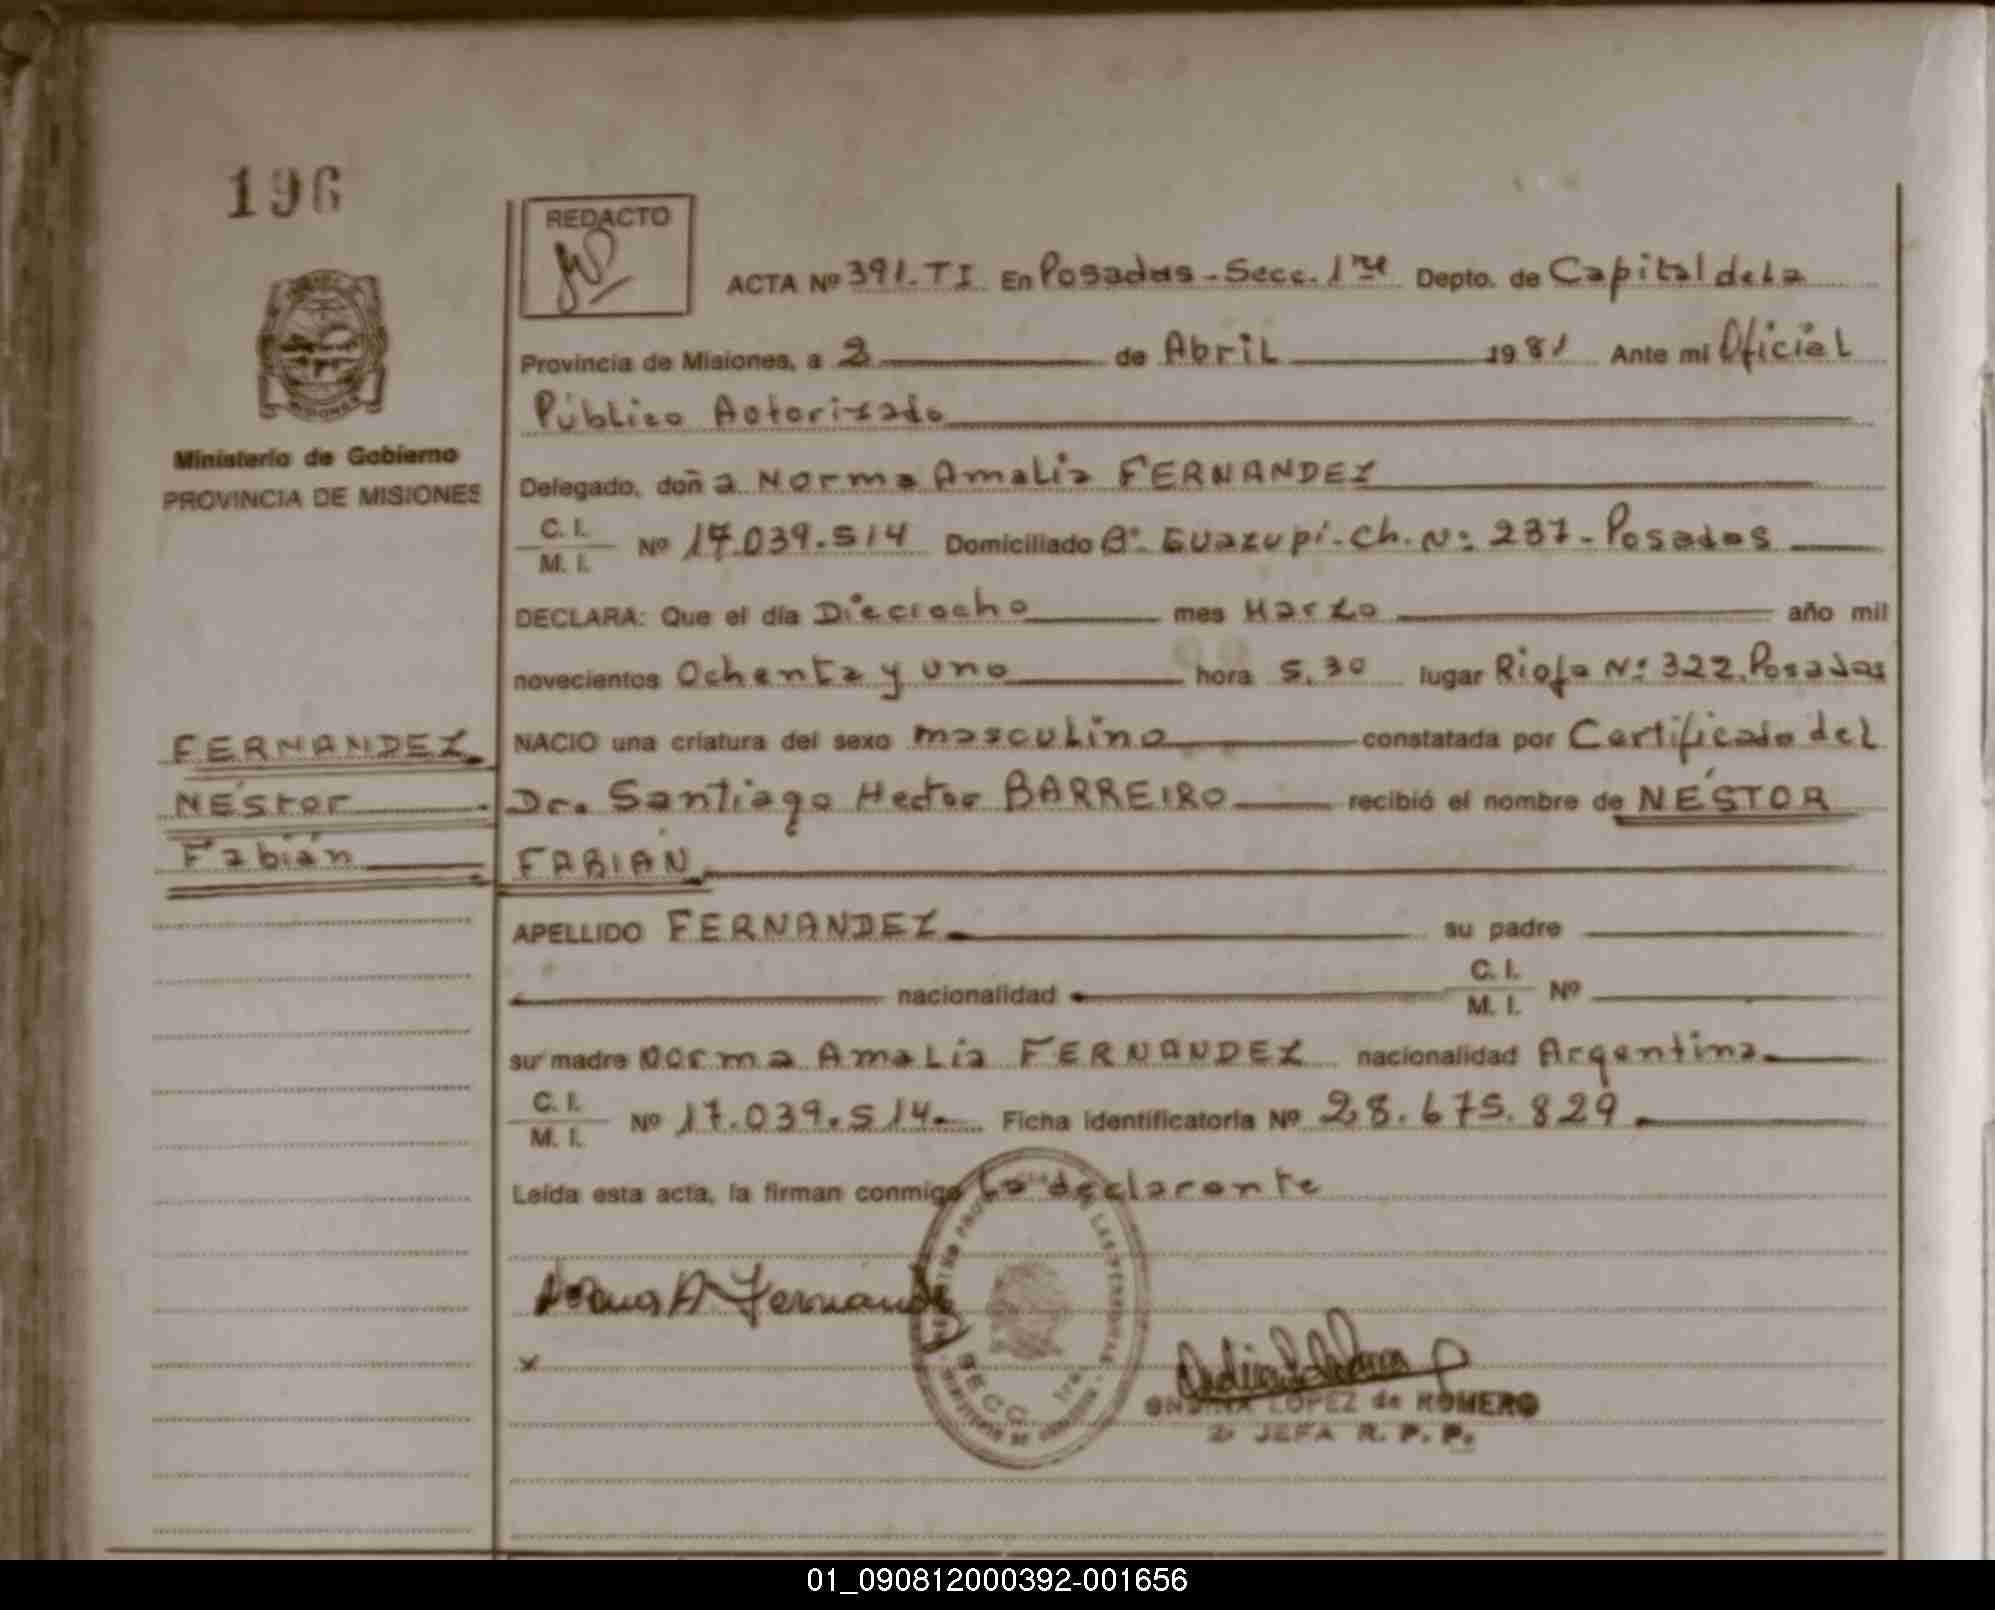 196
REDACTO
ACTA Nº 391. TI En Posadas - Secc. 1ra Depto. de Capital de La
Provincia de Misiones, a 2 de Abril 1981 Ante mi Oficial
Público Autorizado
Ministerio de Gobierno
PROVINCIA DE MISIONES
Delegado, doña Norma Amalia FERNANDEZ
C. I. / M. I. Nº 17.039.514 Domiciliado Bº. Guazupí - Ch. Nº: 237 - Posadas
DECLARA: Que el día Dieciocho mes Marzo año mil
novecientos Ochenta y uno hora 5.30 lugar Rioja Nº: 322. Posadas
FERNANDEZ
Néstor
Fabián
NACIO una criatura del sexo masculino constatada por Certificado del
Dr. Santiago Hector BARREIRO recibió el nombre de NÉSTOR
FABIÁN
APELLIDO FERNANDEZ su padre
nacionalidad C. I. / M. I. Nº
su madre Norma Amalia FERNANDEZ nacionalidad Argentina
C. I. / M. I. Nº 17.039.514. Ficha identificatoria Nº 28.675.829.
Leída esta acta, la firman conmigo La declarante
Norma A Fernandez
x
SECC. 1ra
ONDINA LOPEZ de ROMERO
JEFA R. P. P.
01_090812000392-001656